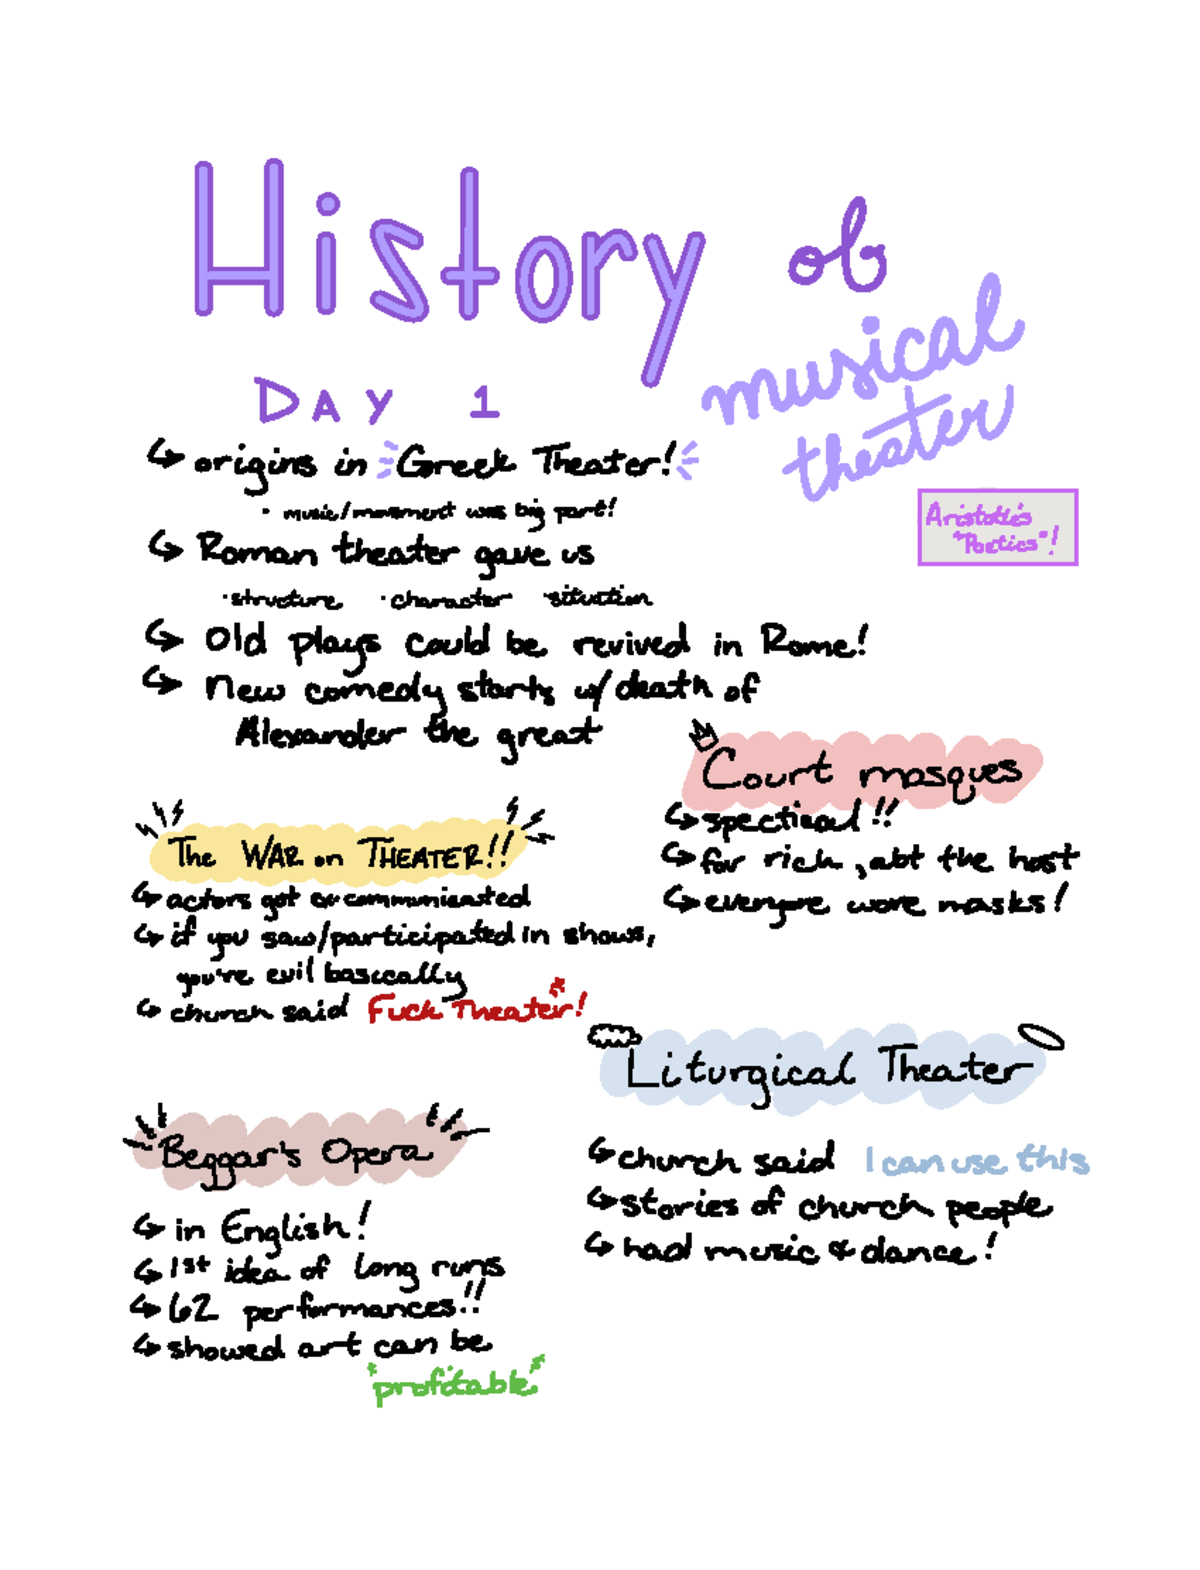 History of
musical
theater
DAY 1
↳ origins in Greek Theater!
· music/movement was big part!
Aristotle's
"Poetics"!
↳ Roman theater gave us
· structure · character · situation
↳ Old plays could be revived in Rome!
↳ New comedy starts w/ death of
Alexander the great
Court masques
↳ spectical!!
↳ for rich, abt the host
↳ everyone wore masks!
The WAR on THEATER!!
↳ actors got excommunicated
↳ if you saw/participated in shows,
you're evil basically
↳ church said Fuck Theater!
Liturgical Theater
↳ church said I can use this
↳ stories of church people
↳ had music & dance!
Beggar's Opera
↳ in English!
↳ 1st idea of long runs
↳ 62 performances!!
↳ showed art can be
*profitable*